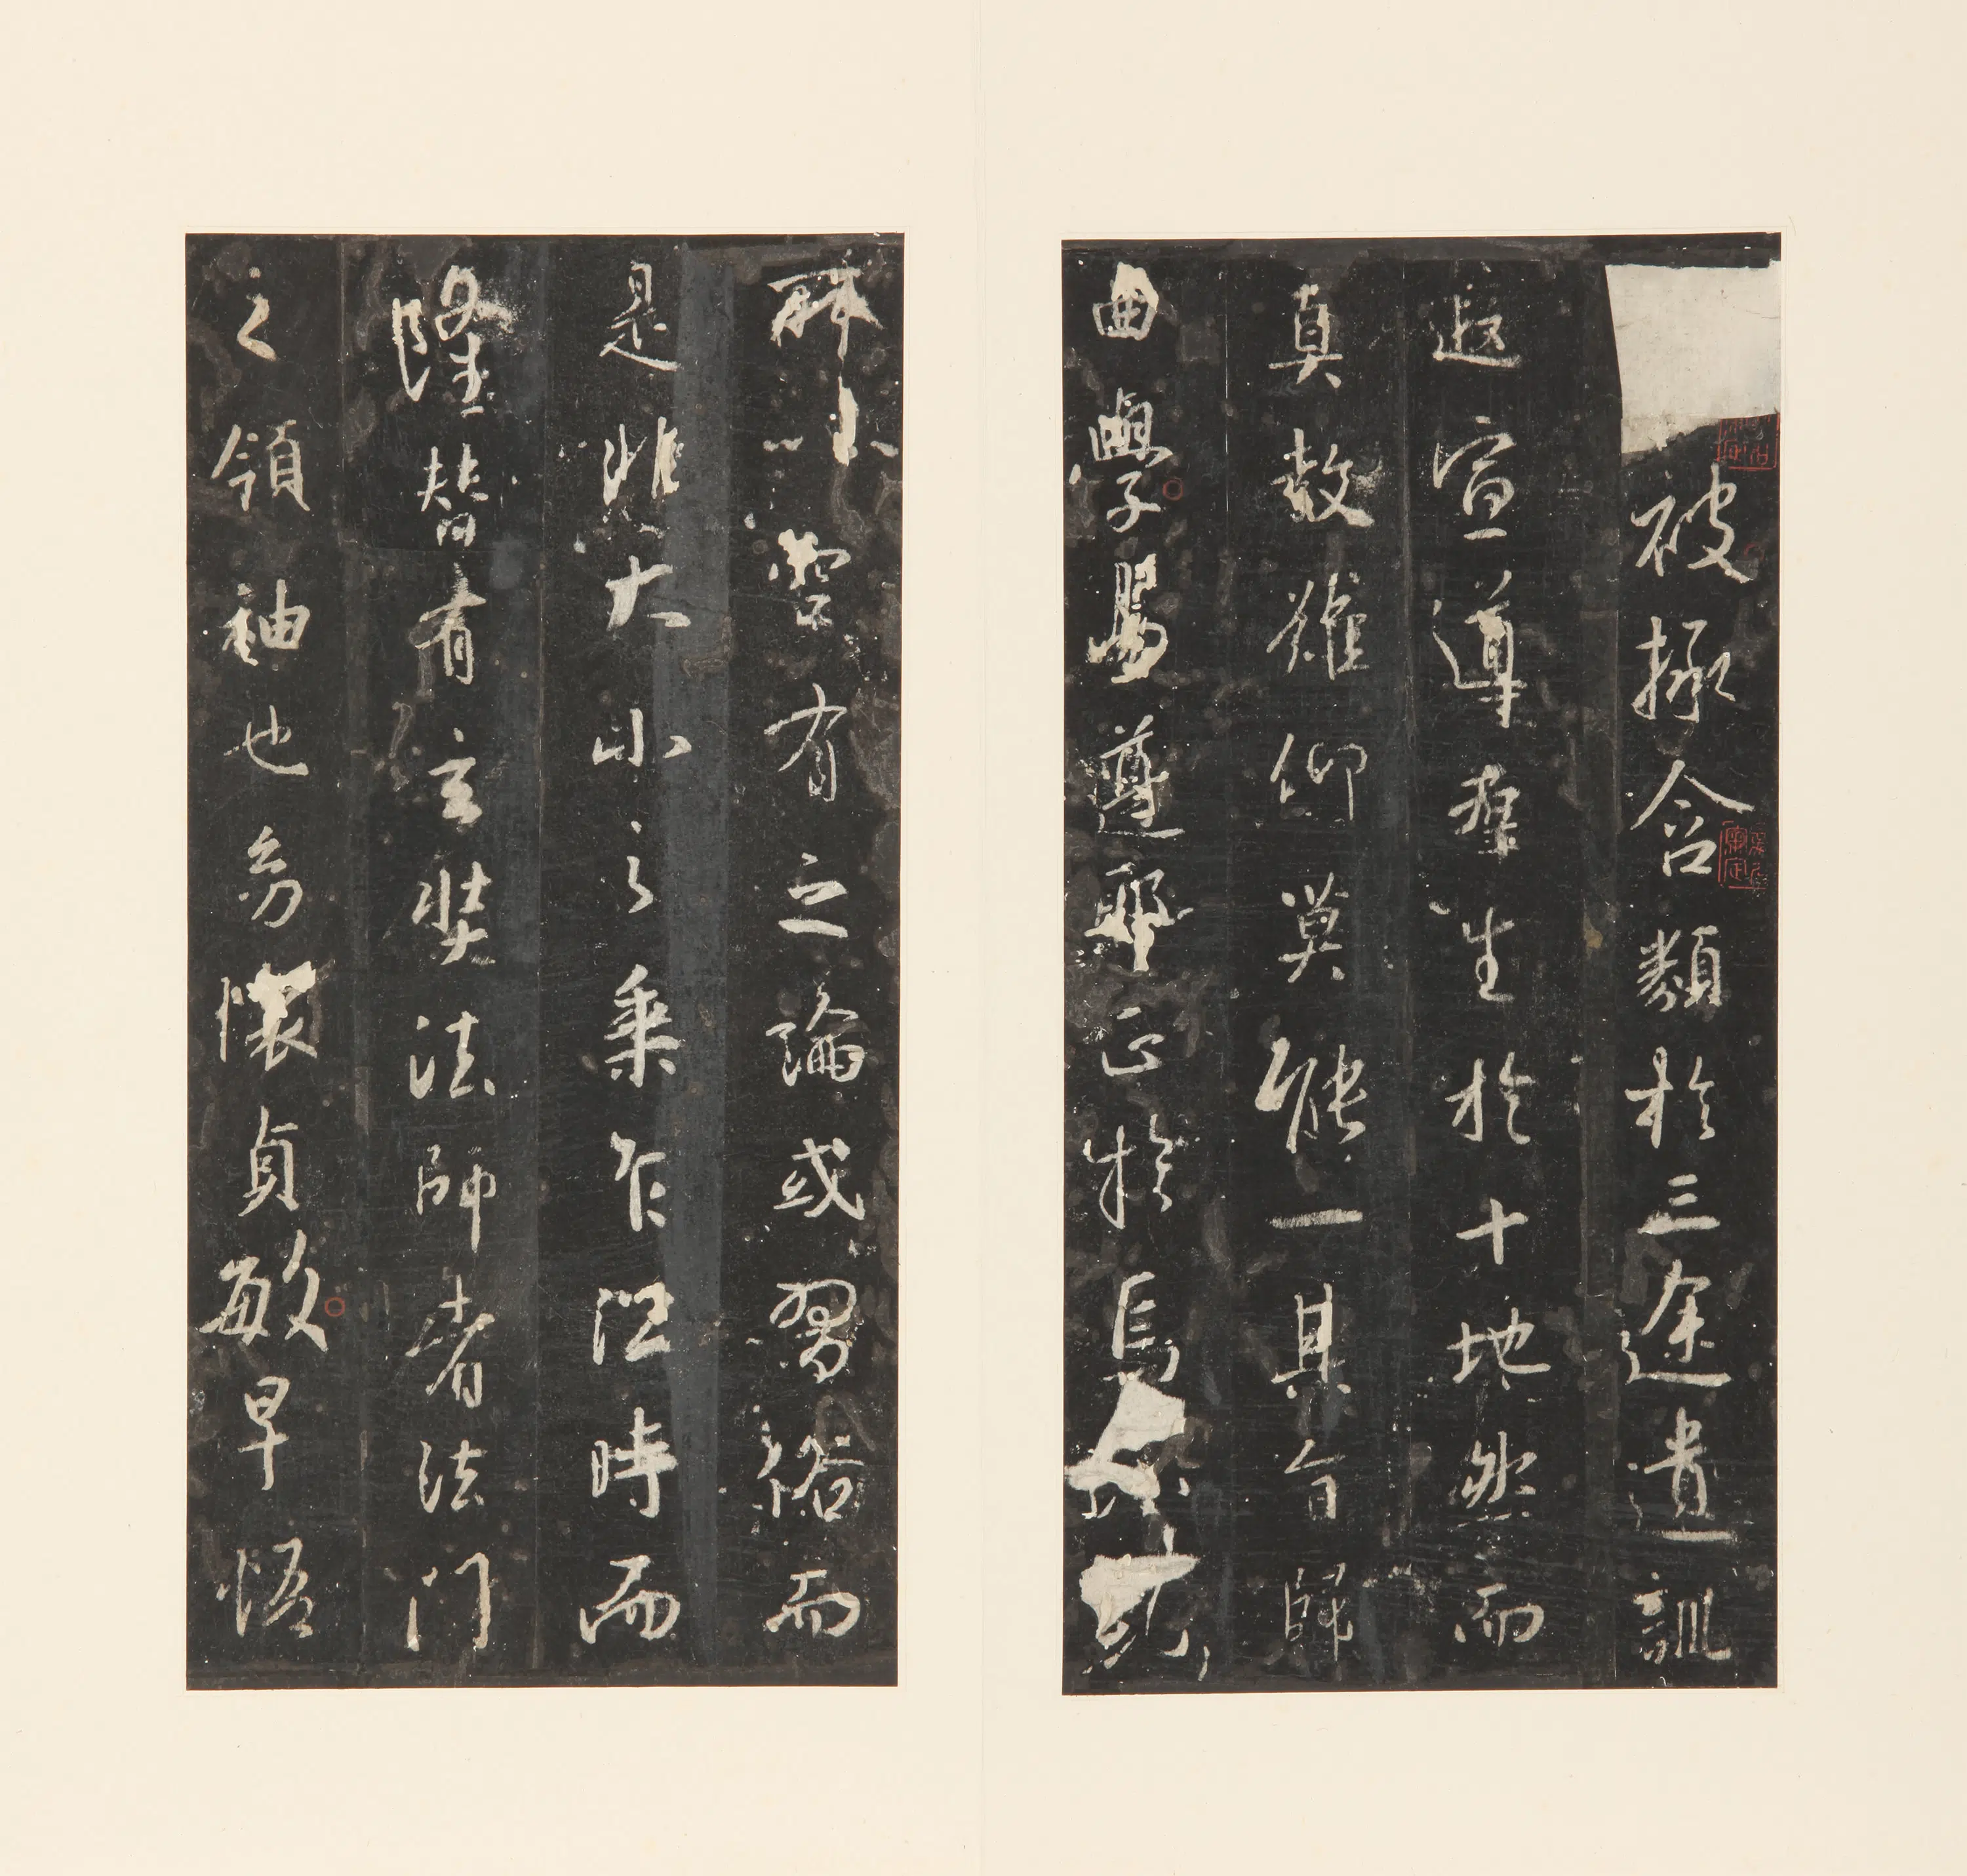 被拯含類於三途遺訓
遐宣導群生於十地然而
真教難仰莫能一其旨歸
曲學易遵耶正於焉
空有之論或習俗而
是非大小之乘乍沿時而
隆替有玄奘法師者法門
之領袖也幼懷貞敏早悟